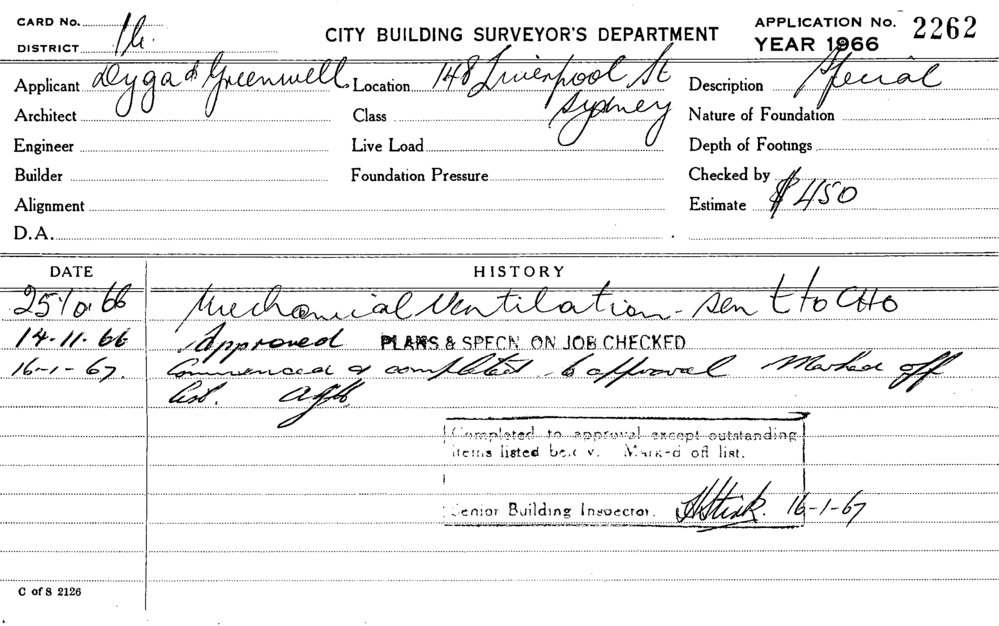 CARD No.
DISTRICT
CITY BUILDING SURVEYOR'S DEPARTMENT
APPLICATION No. 2262
YEAR 1966
Applicant Dyga & Greenwell Location 148 Liverpool St Sydney Description Special
Architect Class Nature of Foundation
Engineer Live Load Depth of Footings
Builder Foundation Pressure Checked by
Alignment Estimate $450
D.A.
DATE HISTORY
25.10.66 Mechanical Ventilation - sent to CHO
14.11.66 Approved PLANS & SPECN ON JOB CHECKED
16-1-67. Commenced & completed to approval Marked off
list.
Completed to approval except outstanding
items listed below. Marked off list.
Senior Building Inspector. 16-1-67
C of S 2126